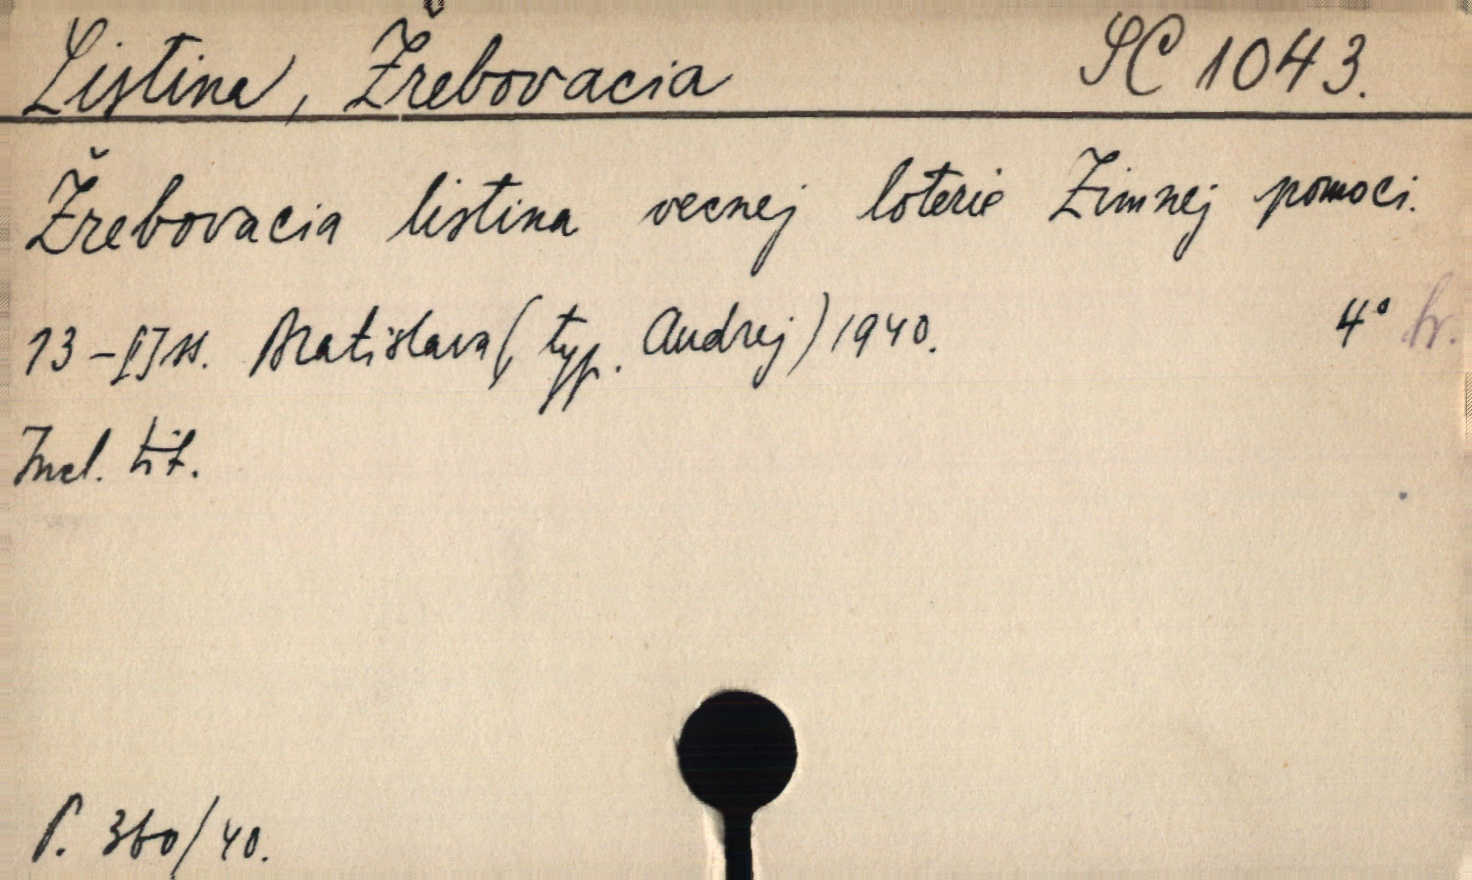 Listina, Žrebovacia SC 1043.
Žrebovacia listina vecnej loterie Zimnej pomoci.
13-[I] ss. Bratislava (typ. Andrej) 1940. 4° br.
Incl. tit.
P. 360/40.